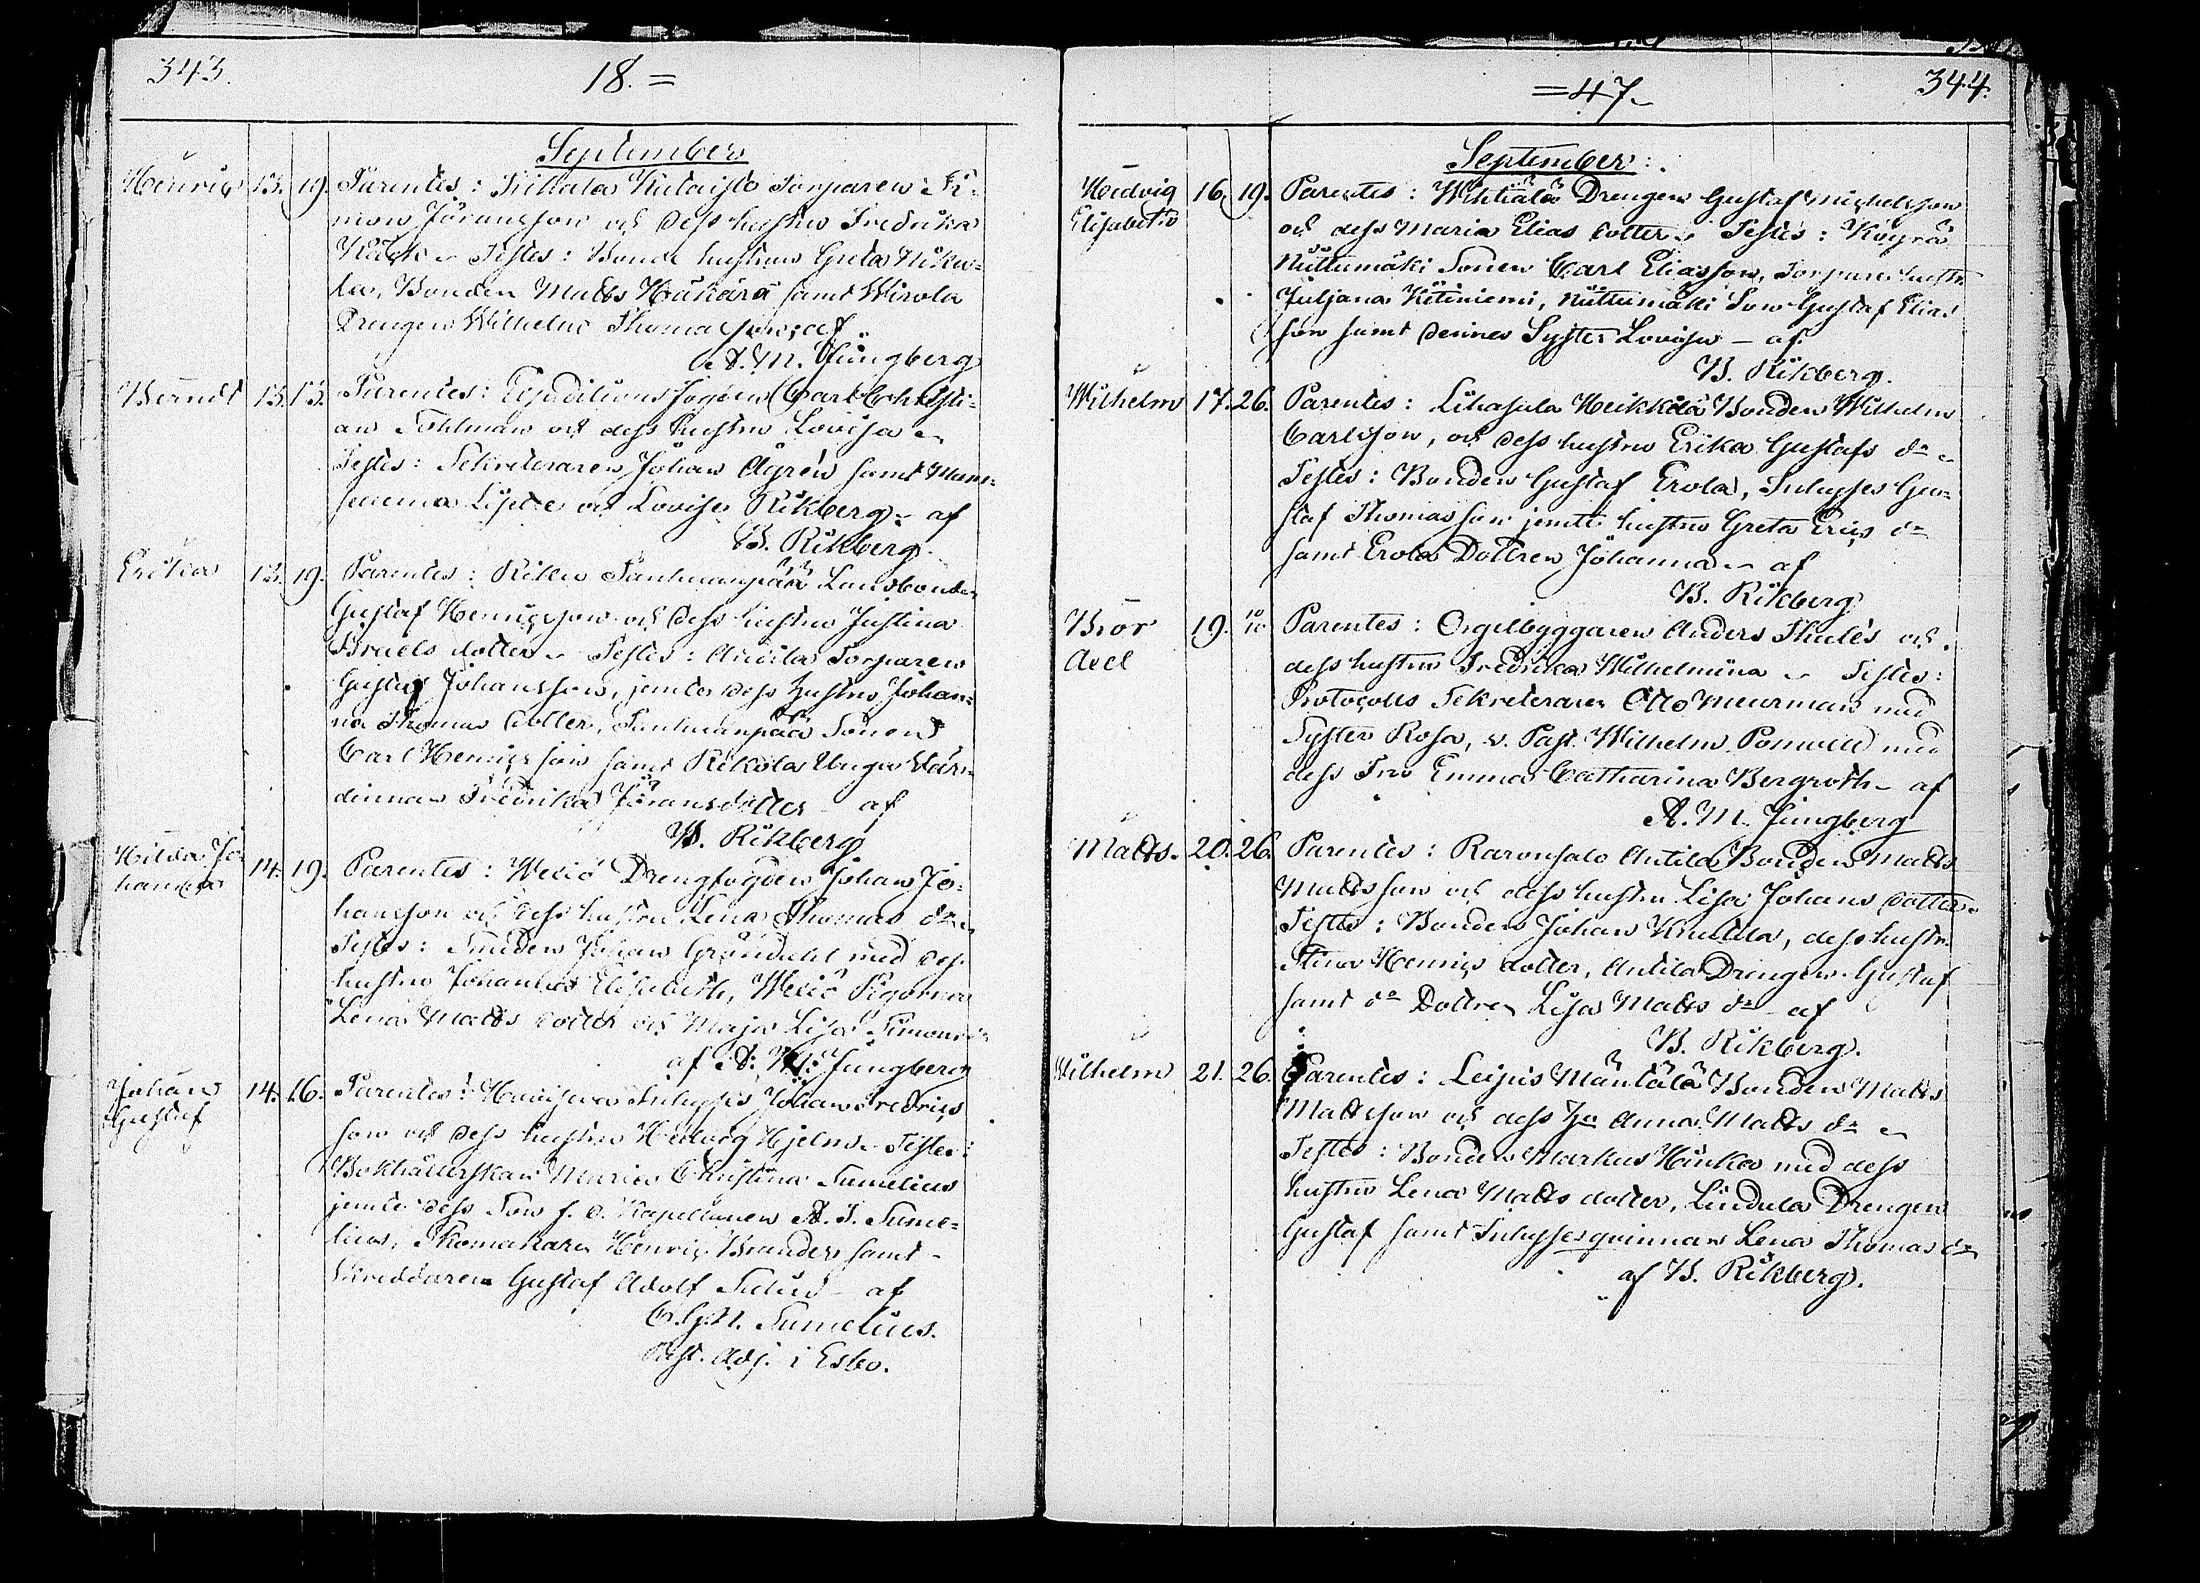 343.
18.=
September
Henric 13. 19. Parentes: Kutaisto Torparen Si-
mon Jöransson och dess hustru Fredrika
Testes: Bonde hustrun Greta
Bonden Matts samt Wirola
Drengen Wilhelm Thomasson, af
A. M. Ljungberg
Berndt 13. 13. Parentes: Expeditions Fogden Carl Christi-
an Fohlman och dess hustru Lovisa
Testes: Sekreteraren Johan Aÿrén samt Mam-
och Lovisa Rikberg - af
B. Rikberg.
Erika 13. 19. Parentes: Landbonden
Gustaf Henricsson och dess hustru Justina
Israels dotter - Testes: Torparen
Gustaf Johansson, jemte dess hustru Johan-
na Thomas dotter, Sonen
Carl Henricsson samt Rikola Unga Wär-
dinnan Fredrika Jöransdotter af
B. Rikberg
Hilda Jo-
hanna 14. 19. Parentes: Drengfogden Johan Jo-
hansson och dess hustru Lena Thomas dr
Testes: Smeden Johan Gröndahl med dess
hustru Johanna Elisabeth, Pigorna
Lena Matts dotter och Maja Lisa Simons
af A. M. Ljungberg
Johan
Gustaf 14. 16. Parentes: Inhyses Johan Fredrics
son och dess hustru Hedvig Hjelm - Testes:
Bokhållerskan Maria Christina Sumelius
jemte dess Son f. d. Kapellanen A. J. Sume-
lius, Skomakaren Henric Brander samt
Skreddaren Gustaf Adolf - af
C. G. N. Sumelius.
Past. Adj. i Esbo.
=47.
344.
September:
Hedvig
Elisabeth 16. 19. Parentes: Drengen Gustaf Michelsson
och dess Maria Elias dotter - Testes: Köyrä
Niittumäki Sonen Carl Eliasson, Torpare hustr.
Juljana Kitiniemi, Niittumäki Son Gustaf Elias
son samt dennes Syster Lovisa - af
B. Rikberg.
Wilhelm 17. 26. Parentes: Lihasula Heikkilä Bonden Wilhelm
Carlsson, och dess hustru Erika Gustafs dr
Testes: Bonden Gustaf Erola, Inhyses Gu-
staf Thomasson jemte hustru Greta Erics dr
samt Erola Dottren Johanna - af
B. Rikberg
Bror
Axel 19. 10/10 Parentes: Orgelbyggaren Anders Thulé och
dess hustru Fredrika Wilhelmina - Testes:
Protocolls Sekreteraren Otto Meurman med
Syster Rosa, v. Past. Wilhelm Ponwell med
dess Fru Emma Catharina Bergroth - af
A. M. Ljungberg
Matts. 20. 26. Parentes: Raronsalo Antila Bonden Matts
Mattsson och dess hustru Lisa Johans dotter -
Testes: Bonden Johan Knuttila, dess hustr.
Stina Henrics dotter, Antila Drengen Gustaf
samt do Dottren Lisa Matts dr - af
B. Rikberg.
Wilhelm 21. 26. Parentes: Leipis Mäntälä Bonden Matts
Mattsson och dess hu Anna Matts dr -
Testes: Bonden Markus Haukea med dess
hustru Lena Matts dotter, Lindula Drengen
Gustaf samt Inhysesqvinnan Lena Thomas dr
af B. Rikberg.